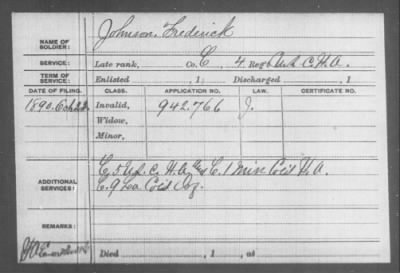 NAME OF SOLDIER: Johnson, Frederick
SERVICE: Late rank, Co. C, 4 Reg't C.H.A.
TERM OF SERVICE: Enlisted , 1 ; Discharged , 1
DATE OF FILING. CLASS. APPLICATION NO. LAW. CERTIFICATE NO.
1890. Invalid, 942.766 J.
Widow,
Minor,
ADDITIONAL SERVICES: C. 5 U.S. C. H.A. C. 1 Miss Col'd H.A.
C. 9 La Col'd
REMARKS:
Died , 1 , at